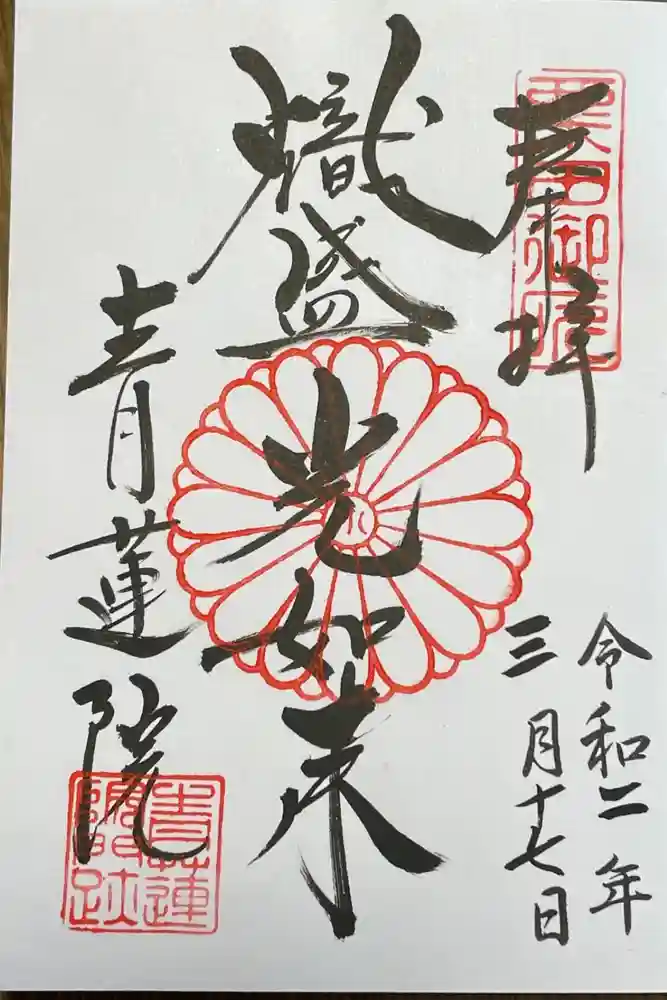 奉拝
粟田御所
令和二年
三月十七日
熾盛光如来
青蓮院
青蓮院門跡